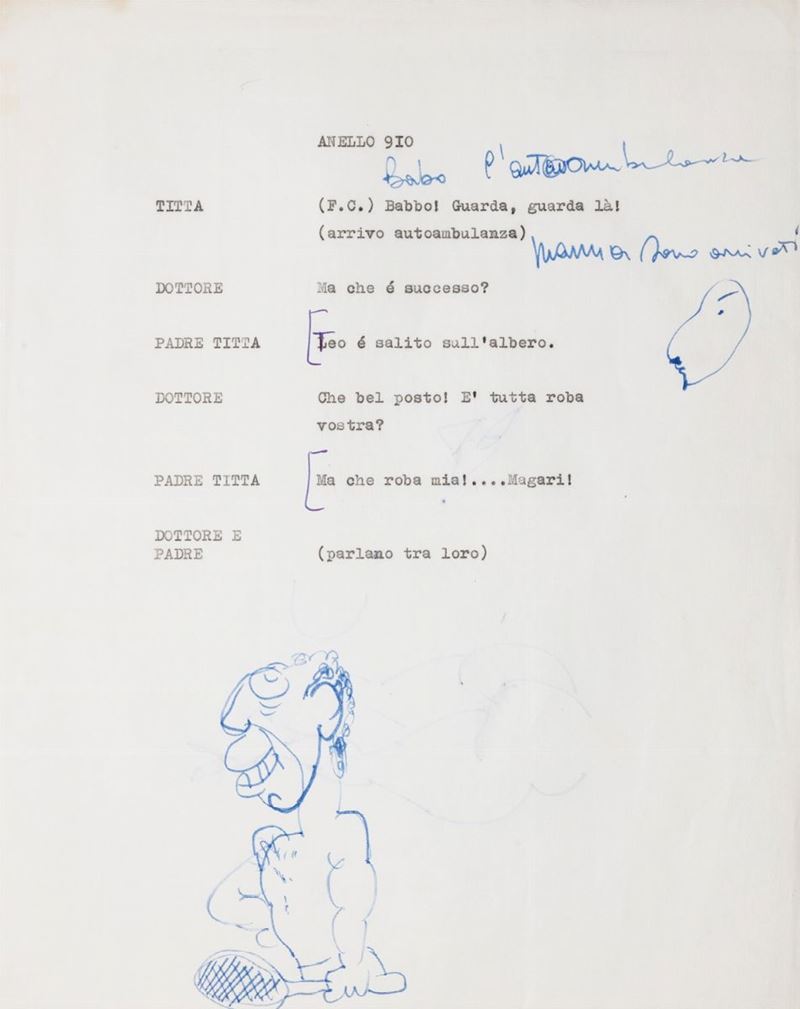 ANELLO 9IO
Babo l'autoambulanza
TITTA (F.C.) Babbo! Guarda, guarda là!
(arrivo autoambulanza)
Mamma sono arrivati
DOTTORE Ma che é successo?
PADRE TITTA Teo é salito sull'albero.
DOTTORE Che bel posto! E' tutta roba
vostra?
PADRE TITTA Ma che roba mia!....Magari!
DOTTORE E
PADRE (parlano tra loro)